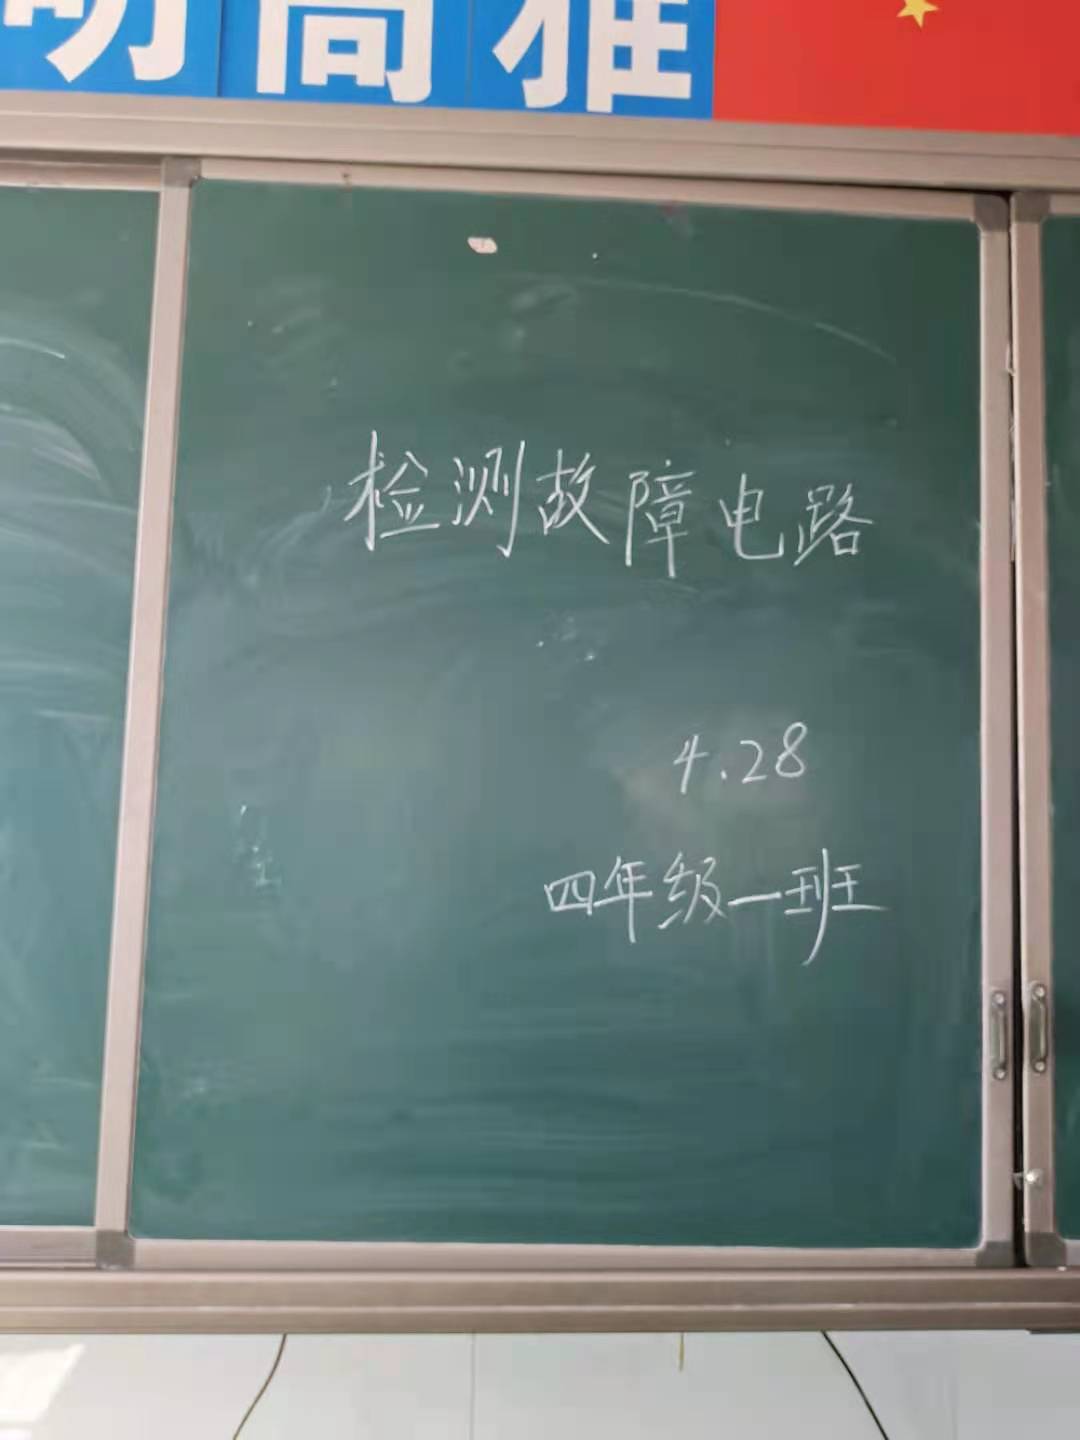 明高雅
检测故障电路
4.28
四年级一班